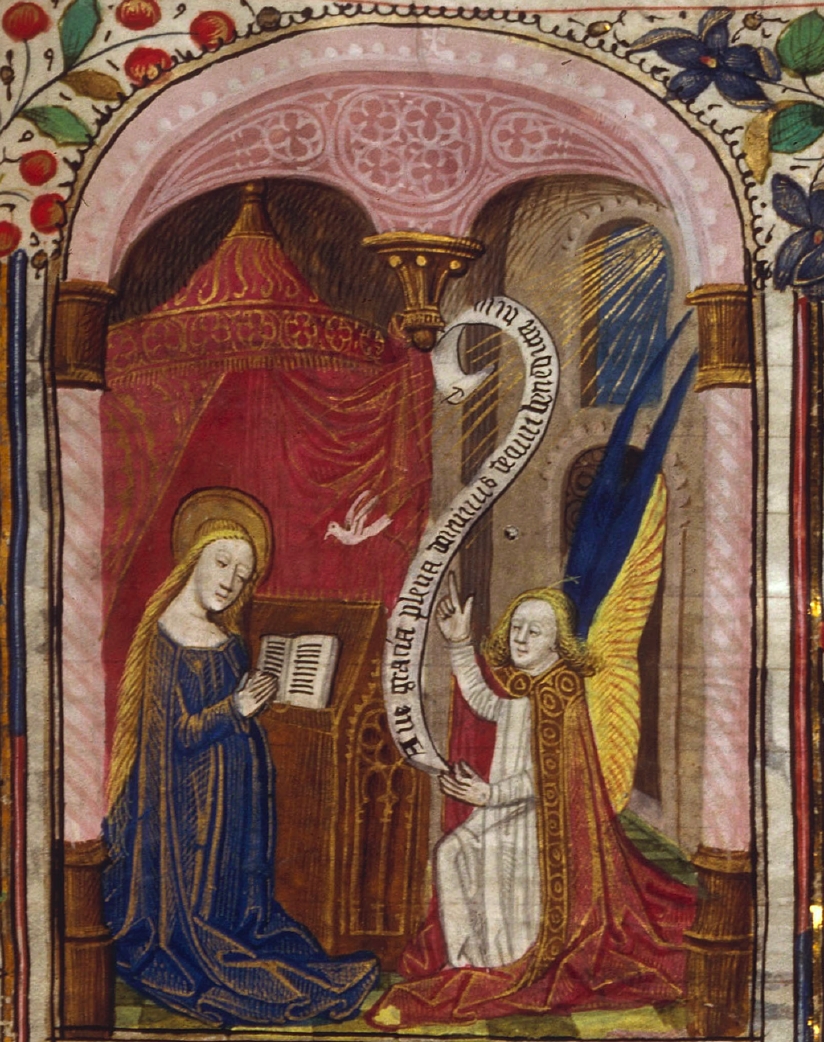 Aue gracia plena dominus tecum benedicta tu in